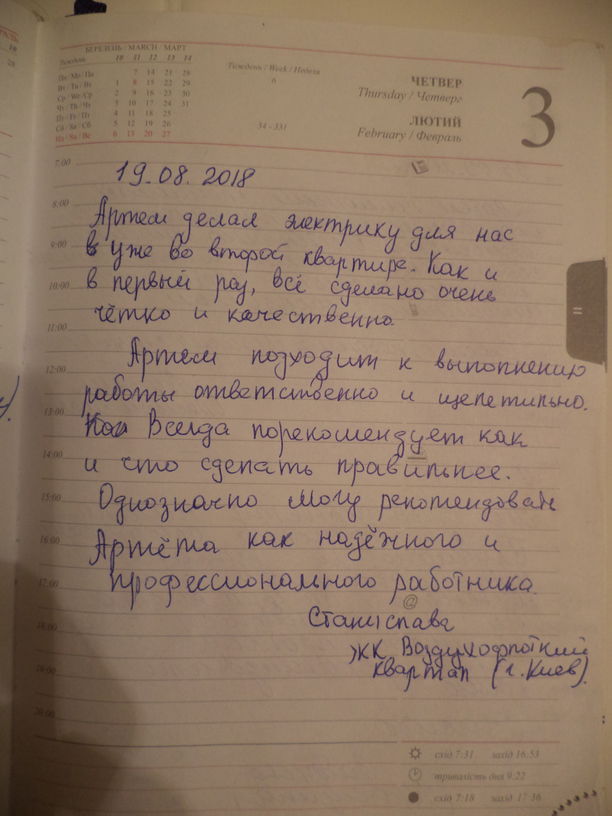 БЕРЕЗЕНЬ / MARCH / МАРТ
Тиждень 10 11 12 13 14
Пн / Mo / Пн 7 14 21 28
Вт / Tu / Вт 1 8 15 22 29
Ср / We / Ср 2 9 16 23 30
Чт / Th / Чт 3 10 17 24 31
Пт / Fr / Пт 4 11 18 25
Сб / Sa / Сб 5 12 19 26
Нд / Su / Вс 6 13 20 27
Тиждень / Week / Неделя
6
34 - 331
ЧЕТВЕР
Thursday / Четверг
ЛЮТИЙ
February / Февраль
3
7:00
19.08.2018
8:00
Артем делал электрику для нас
9:00
уже во второй квартире. Как и
10:00
в первый раз, всё сделано очень
чётко и качественно
11:00
Артем подходит к выполнению
12:00
работы ответственно и щепетильно.
13:00
Всегда порекомендует как
14:00
и что сделать правильнее.
15:00
Однозначно могу рекомендовать
16:00
Артёма как надёжного и
17:00
профессионального работника.
@
Станислава
18:00
ЖК Воздухофлотский
квартал (г. Киев).
19:00
20:00
схід 7:31 захід 16:53
тривалість дня 9:22
схід 7:18 захід 17:36